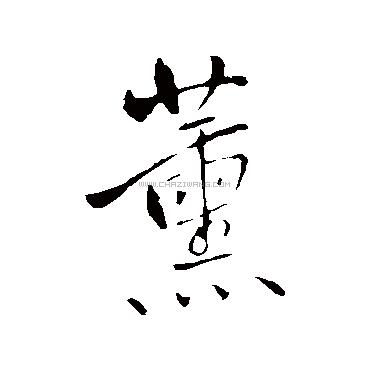 薰
WWW.CHAZIWANG.COM